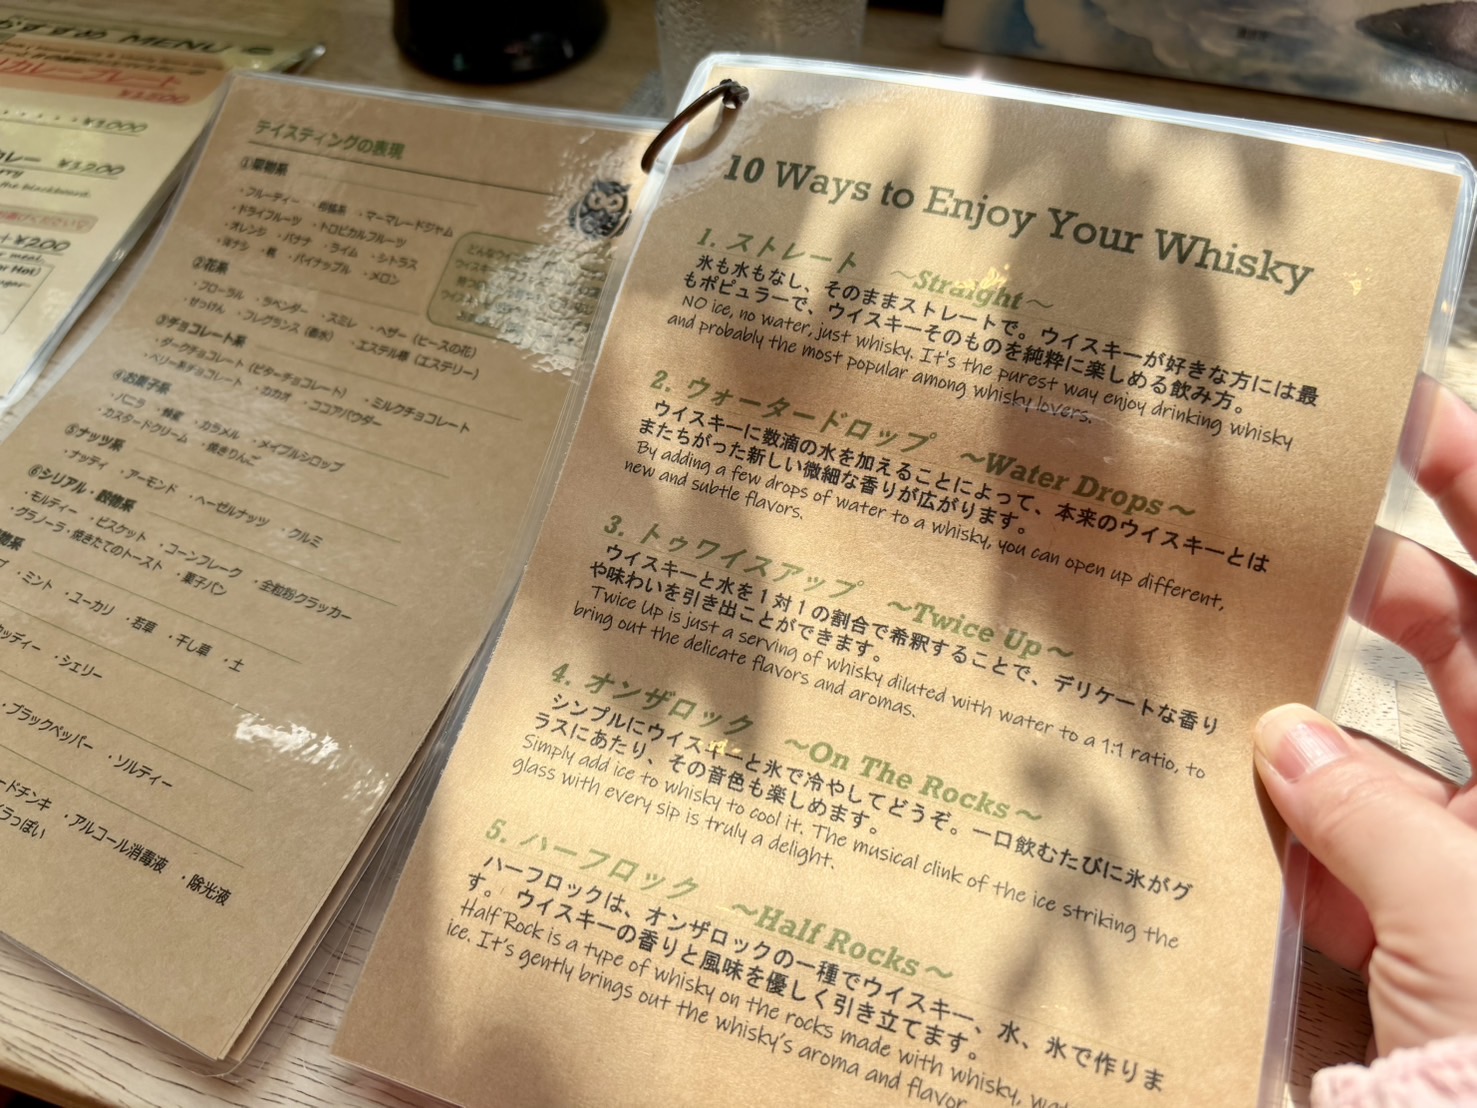 おすすめ MENU
カレープレート
¥1,500
¥1,000
カレー ¥1,200
the blackboard.
¥200
テイスティングの表現
①果物系
・フルーティー ・柑橘系 ・マーマレードジャム
・ドライフルーツ ・トロピカルフルーツ
・オレンジ ・バナナ ・ライム ・シトラス
・洋ナシ ・桃 ・パイナップル ・メロン
②花系
・フローラル ・ラベンダー ・スミレ ・ヘザー（ヒースの花）
・せっけん ・フレグランス（香水） ・エステル香（エステリー）
③チョコレート系
・ダークチョコレート（ビターチョコレート） ・ミルクチョコレート
・ベリー系チョコレート ・カカオ ・ココアパウダー
④お菓子系
・バニラ ・蜂蜜 ・カラメル ・メイプルシロップ
・カスタードクリーム ・焼きりんご
⑤ナッツ系
・ナッティ ・アーモンド ・ヘーゼルナッツ ・クルミ
⑥シリアル・穀物系
・モルティー ・ビスケット ・コーンフレーク ・全粒粉クラッカー
・グラノーラ・焼きたてのトースト ・菓子パン
・ミント ・ユーカリ ・若草 ・干し草 ・土
ウッディー ・シェリー
・ブラックペッパー ・ソルティー
ードチンキ ・アルコール消毒液 ・除光液
っぽい
10 Ways to Enjoy Your Whisky
1. ストレート ～Straight～
氷も水もなし、そのままストレートで。ウイスキーが好きな方には最
もポピュラーで、ウイスキーそのものを純粋に楽しめる飲み方。
NO ice, no water, just whisky. It's the purest way enjoy drinking whisky
and probably the most popular among whisky lovers.
2. ウォータードロップ ～Water Drops～
ウイスキーに数滴の水を加えることによって、本来のウイスキーとは
またちがった新しい微細な香りが広がります。
By adding a few drops of water to a whisky, you can open up different,
new and subtle flavors.
3. トゥワイスアップ ～Twice Up～
ウイスキーと水を１対１の割合で希釈することで、デリケートな香り
や味わいを引き出ことができます。
Twice Up is just a serving of whisky diluted with water to a 1:1 ratio, to
bring out the delicate flavors and aromas.
4. オンザロック ～On The Rocks～
シンプルにウイスキーと氷で冷やしてどうぞ。一口飲むたびに氷がグ
ラスにあたり、その音色も楽しめます。
Simply add ice to whisky to cool it. The musical clink of the ice striking the
glass with every sip is truly a delight.
5. ハーフロック ～Half Rocks～
ハーフロックは、オンザロックの一種でウイスキー、水、氷で作りま
す。 ウイスキーの香りと風味を優しく引き立てます。
Half Rock is a type of whisky on the rocks made with whisky,
ice. It's gently brings out the whisky's aroma and flavor